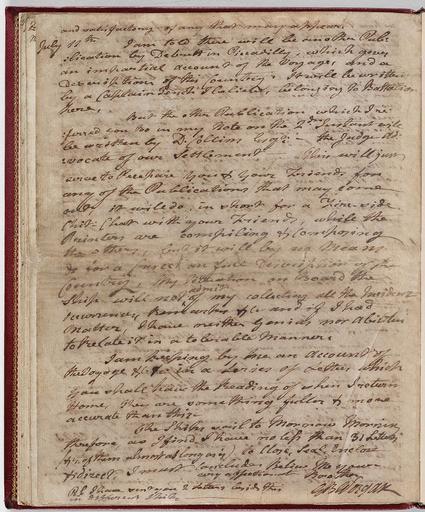 and satisfactory of any that may appear.
July 11th I am told there will be another Pub-
lication by Debrett in Piccadilly, which gives
an impartial account of the Voyage, and a
Description of the Country; It will be written
by a Captain belonging to Battalion
here,
But the other Publication which I re-
ferred you to in my Note on the 2d will
be written by D. Collins Esqr. the Judge Ad-
vocate of our Settlement This will just
serve to Prepare You & Your Friends for
any of the Publications that may come
out It will do, in short for a Fire-side
Chit-Chat with your Friends, while the
Printers are compiling & Composing
the others, but it will by no Means
do for a full Description of the
Country; My Situation on Board the
Ship will not admit of my collecting all the Incidents
Occurrences, Remarks &c. and if I had
Matter, I have neither Genius nor Abilities
to relate it in a tolerable Manner.
I am keeping by me an Account of
the Voyage &c &c in a Series of Letters which
You shall have the Reading of when I return
Home, They are something fuller & more
accurate than this.
The Ships sail to Morrow Morning
therefore as I find I have no less than 31 Letters
(& of them almost as long as this) to Close, Seal, Enclose
& direct, I must conclude. Believe Me Your
very affectionate Brother
G B Worgan
P.S. I have sent you 2 Letters beside this
in different Ships